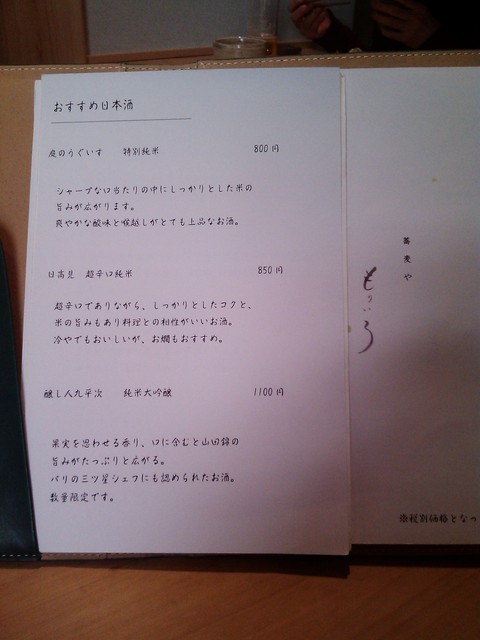 おすすめ日本酒
庭のうぐいす　特別純米　800円
シャープな口当たりの中にしっかりとした米の
旨みが広がります。
爽やかな酸味と喉越しがとても上品なお酒。
日高見　超辛口純米　850円
超辛口でありながら、しっかりとしたコクと、
米の旨みもあり料理との相性がいいお酒。
冷やでもおいしいが、お燗もおすすめ。
醸し人九平次　純米大吟醸　1100円
果実を思わせる香り、口に含むと山田錦の
旨みがたっぷりと広がる。
パリの三ツ星シェフにも認められたお酒。
数量限定です。
蕎麦や
※税別価格となっ